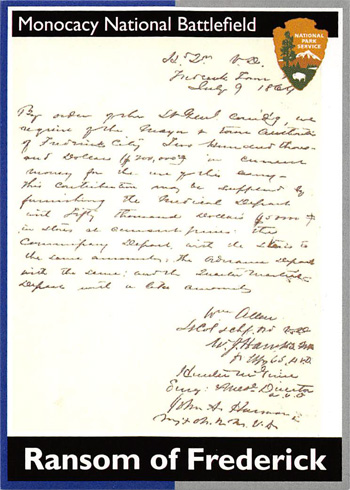 Monocacy National Battlefield
NATIONAL
PARK
SERVICE
July 9 1864
By order of the Lt Genl Comdg, we
require of the Mayor & town authorities
of Frederick City Two Hundred thous-
and Dollars ($200,000) in current
money for the use of this army
This Contribution may be supplied by
furnishing the Medical Depart
with fifty thousand Dollars
in stores at current prices: the
Commissary Depart, with the stores to
the same amount; the Ordnance Depart
with the same: and the Quarter Masters
Depart with a like amount
Wm Allan
W. J. Hawks
Hunter McGuire
John A Harman
Ransom of Frederick